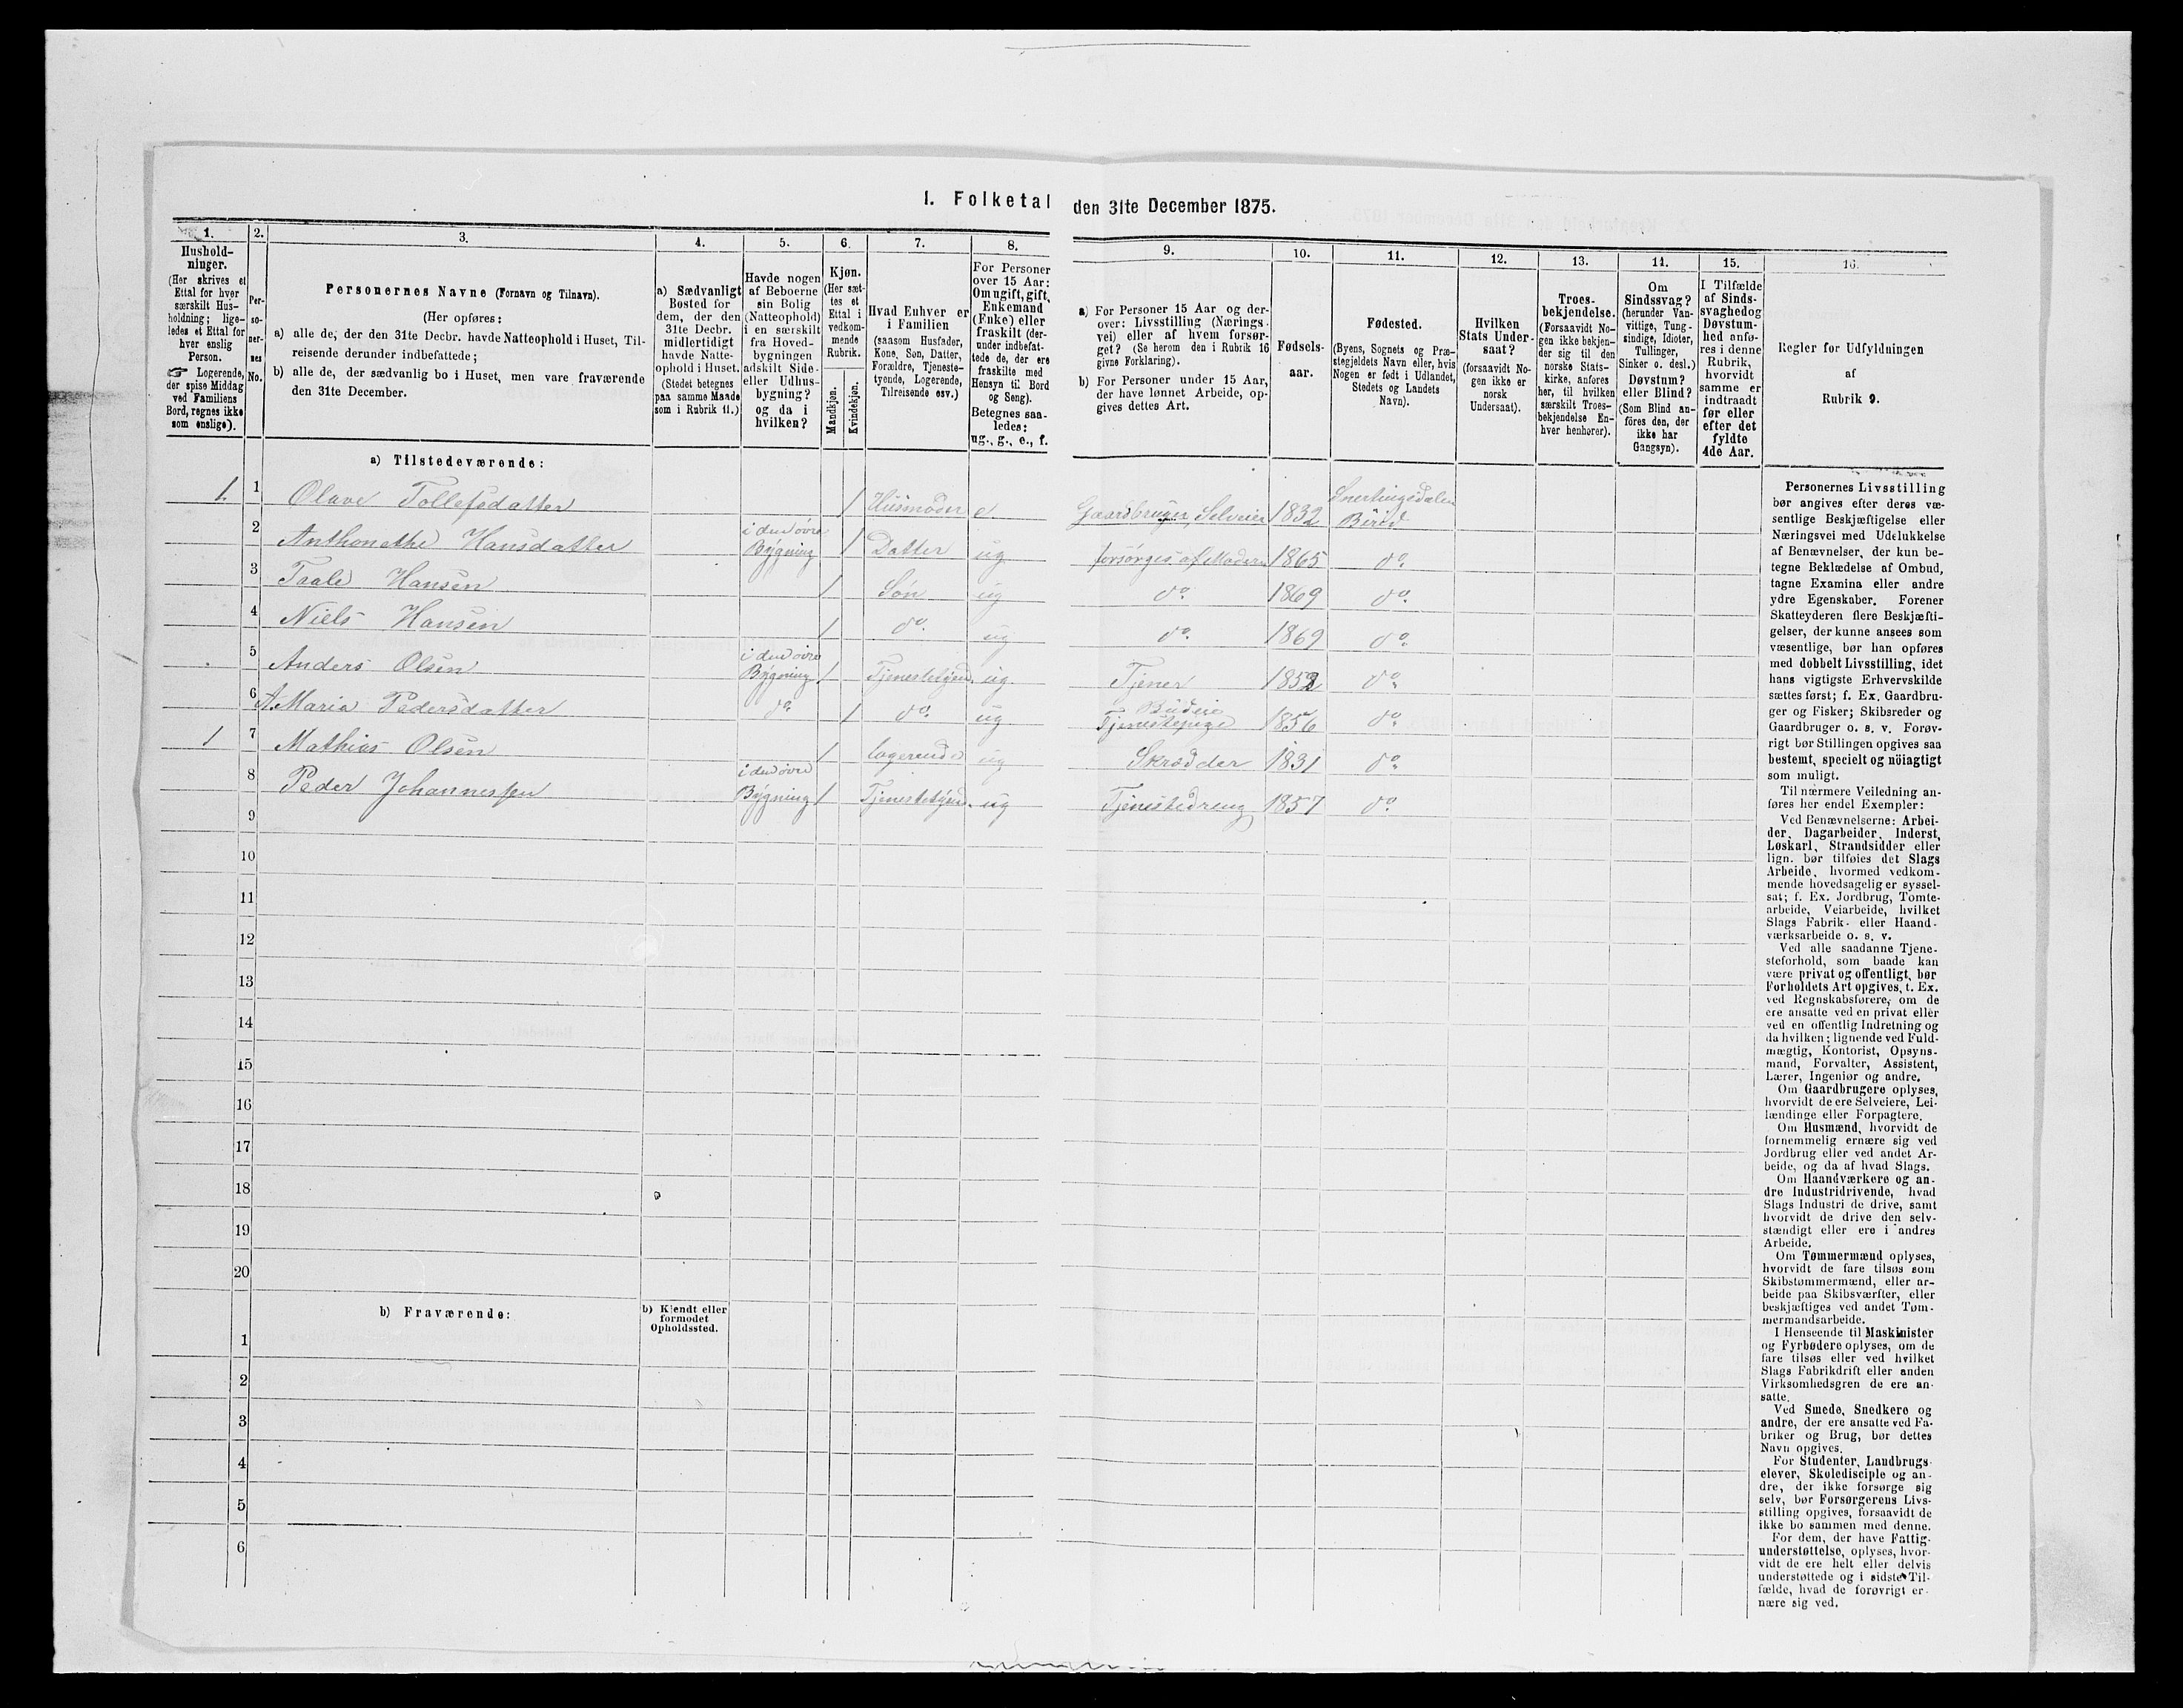 I. Folketal den 31te December 1875.
1.
Hushold-
ninger.
(Her skrives et
Ettal for hver
særskilt Hus-
holdning; lige-
ledes et Ettal for
hver enslig
Person.
☞ Logerende,
der spise Middag
ved Familiens
Bord, regnes ikke
som enslige).
2.
Per-
so-
ner-
nes
No.
3.
Personernes Navne (Fornavn og Tilnavn).
(Her opføres:
a) alle de, der den 31te Decbr. havde Natteophold i Huset, Til-
reisende derunder indbefattede;
b) alle de, der sædvanlig bo i Huset, men vare fraværende
den 31te December.
4.
a) Sædvanligt
Bosted for
dem, der den
31te Decbr.
midlertidigt
havde Natte-
ophold i Huset.
(Stedet betegnes
paa samme Maade
som i Rubrik 11.)
5.
Havde nogen
af Beboerne
sin Bolig
(Natteophold)
i en særskilt
fra Hoved-
bygningen
adskilt Side-
eller Udhus-
bygning?
og da i
hvilken?
6.
Kjøn.
(Her sæt-
tes et
Ettal i
vedkom-
mende
Rubrik.
Mandkjøn.
Kvindekjøn.
7.
Hvad Enhver er
i Familien
(saasom Husfader,
Kone, Søn, Datter,
Forældre, Tjeneste-
tyende, Logerende,
Tilreisende osv.)
8.
For Personer
over 15 Aar:
Om ugift, gift,
Enkemand
(Enke) eller
fraskilt (der-
under indbefat-
tede de, der ere
fraskilte med
Hensyn til Bord
og Seng).
Betegnes saa-
ledes:
ug., g., e., f.
9.
a) For Personer 15 Aar og der-
over: Livsstilling (Nærings-
vei) eller af hvem forsør-
get? (Se herom den i Rubrik 16
givne Forklaring).
b) For Personer under 15 Aar,
der have lønnet Arbeide, op-
gives dettes Art.
10.
Fødsels-
aar.
11.
Fødested.
(Byens, Sognets og Præ-
stegjeldets Navn eller, hvis
Nogen er født i Udlandet,
Stedets og Landets
Navn).
12.
Hvilken
Stats Under-
saat?
(forsaavidt No-
gen ikke er
norsk
Undersaat).
13.
Troes-
bekjendelse.
(Forsaavidt No-
gen ikke bekjen-
der sig til den
norske Stats-
kirke, anføres
her, til hvilken
særskilt Troes-
bekjendelse En-
hver henhører).
14.
Om
Sindssvag?
(herunder Van-
vittige, Tung-
sindige, Idioter,
Tullinger,
Sinker o. desl.)
Døvstum?
eller Blind?
(Som Blind an-
føres den, der
ikke har
Gangsyn).
15.
I Tilfælde
af Sinds-
svaghedog
Døvstum-
hed anfø-
res i denne
Rubrik,
hvorvidt
samme er
indtraadt
før eller
efter det
fyldte
4de Aar.
16.
Regler for Udfyldningen
af
Rubrik 9.
a) Tilstedeværende:
1. 1 Olave Tollefsdatter 1 Husmoder e. Gaardbruger, Selveier 1832 Snertingsdalen Birid
2 Anthonethe Hansdatter i den øvre Bygning 1 Datter ug forsørges af Moderen 1865 do.
3 Taale Hansen 1 Søn ug do. 1869 do.
4 Niels Hansen 1 do. ug do. 1869 do.
5 Anders Olsen i den øvre Bygning 1 Tjenestetyend. ug. Tjener 1852 do.
6 A. Maria Pedersdatter do. 1 do. ug Tjenestepige Budeie 1856 do.
1 7 Mathias Olsen 1 logerende ug Skrædder 1831 do.
8 Peder Johannessen i den øvre Bygning 1 Tjenestetyend. ug Tjenestedreng 1857 do.
9
10
11
12
13
14
15
16
17
18
19
20
b) Fraværende:
b) Kjendt eller
formodet
Opholdssted.
1
2
3
4
5
6
Personernes Livsstilling
bør angives efter deres væ-
sentlige Beskjæftigelse eller
Næringsvei med Udelukkelse
af Benævnelser, der kun be-
tegne Beklædelse af Ombud,
tagne Examina eller andre
ydre Egenskaber. Forener
Skatteyderen flere Beskjæfti-
gelser, der kunne ansees som
væsentlige, bør han opføres
med dobbelt Livsstilling, idet
hans vigtigste Erhvervskilde
sættes først; f. Ex. Gaardbru-
ger og Fisker; Skibsreder og
Gaardbruger o. s. v. Forøv-
rigt bør Stillingen opgives saa
bestemt, specielt og nöiagtigt
som muligt.
Til nærmere Veiledning an-
føres her endel Exempler:
Ved Benævnelserne: Arbei-
der, Dagarbeider, Inderst,
Løskarl, Strandsidder eller
lign. bør tilføies det Slags
Arbeide, hvormed vedkom-
mende hovedsagelig er syssel-
sat; f. Ex. Jordbrug, Tomte-
arbeide, Veiarbeide, hvilket
Slags Fabrik- eller Haand-
værksarbeide o. s. v.
Ved alle saadanne Tjene-
steforhold, som baade kan
være privat og offentligt, bør
Forholdets Art opgives, t. Ex.
ved Regnskabsførere, om de
ere ansatte ved en privat eller
ved en offentlig Indretning og
da hvilken; lignende ved Fuld-
mægtig, Kontorist, Opsyns-
mand, Forvalter, Assistent,
Lærer, Ingeniør og andre.
Om Gaardbrugere oplyses,
hvorvidt de ere Selveiere, Lei-
lændinge eller Forpagtere.
Om Husmænd, hvorvidt de
fornemmelig ernære sig ved
Jordbrug eller ved andet Ar-
beide, og da af hvad Slags.
Om Haandværkere og an-
dre Industridrivende, hvad
Slags Industri de drive, samt
hvorvidt de drive den selv-
stændigt eller ere i andres
Arbeide.
Om Tømmermænd oplyses,
hvorvidt de fare tilsøs som
Skibstømmermænd, eller ar-
beide paa Skibsværfter, eller
beskjæftiges ved andet Tøm-
mermandsarbeide.
I Henseende til Maskinister
og Fyrbødere oplyses, om de
fare tilsøs eller ved hvilket
Slags Fabrikdrift eller anden
Virksomhedsgren de ere an-
satte.
Ved Smede, Snedkere og
andre, der ere ansatte ved Fa-
briker og Brug, bør dettes
Navn opgives.
For Studenter, Landbrugs-
elever, Skoledisciple og an-
dre, der ikke forsørge sig
selv, bør Forsørgerens Livs-
stilling opgives, forsaavidt de
ikke bo sammen med denne.
For dem, der have Fattig-
understøttelse, oplyses, hvor-
vidt de ere helt eller delvis
understøttede og i sidste Til-
fælde, hvad de forøvrigt er-
nære sig ved.